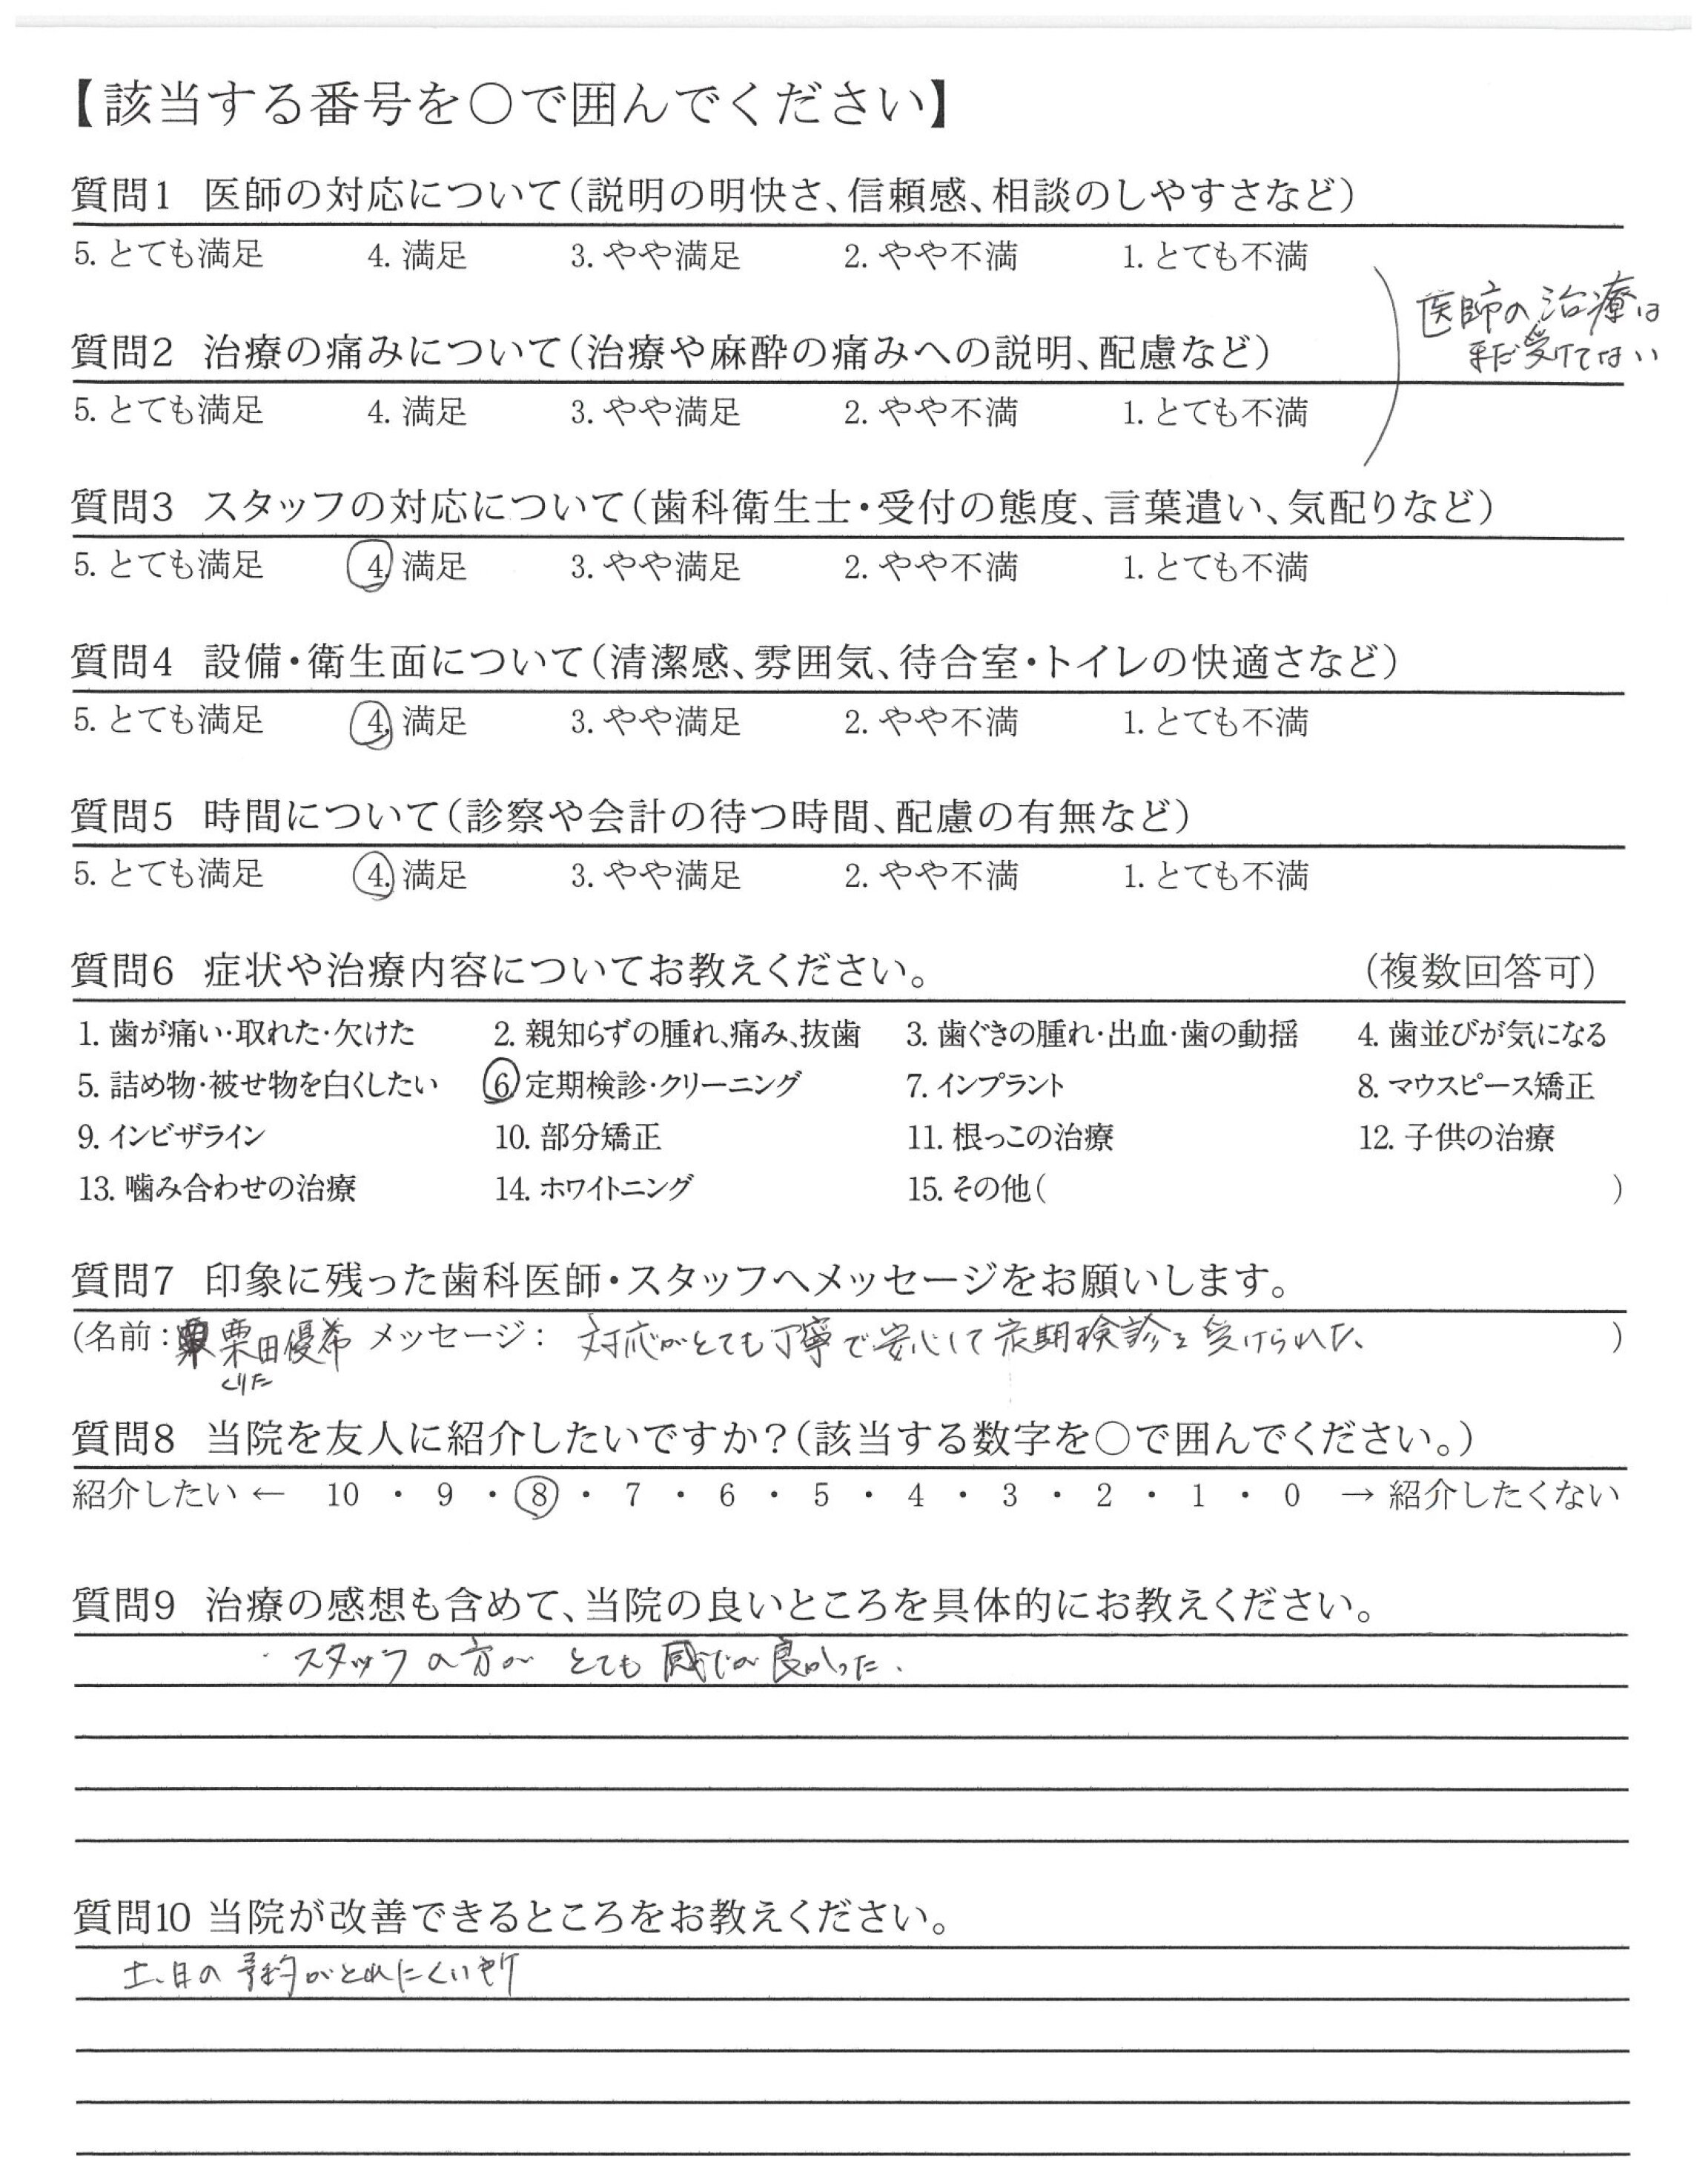 【該当する番号を○で囲んでください】
質問1 医師の対応について(説明の明快さ、信頼感、相談のしやすさなど)
5. とても満足 4. 満足 3. やや満足 2. やや不満 1. とても不満
医師の治療は
まだ受けてない
質問2 治療の痛みについて(治療や麻酔の痛みへの説明、配慮など)
5. とても満足 4. 満足 3. やや満足 2. やや不満 1. とても不満
質問3 スタッフの対応について(歯科衛生士・受付の態度、言葉遣い、気配りなど)
5. とても満足 4. 満足 3. やや満足 2. やや不満 1. とても不満
質問4 設備・衛生面について(清潔感、雰囲気、待合室・トイレの快適さなど)
5. とても満足 4. 満足 3. やや満足 2. やや不満 1. とても不満
質問5 時間について(診察や会計の待つ時間、配慮の有無など)
5. とても満足 4. 満足 3. やや満足 2. やや不満 1. とても不満
質問6 症状や治療内容についてお教えください。 (複数回答可)
1. 歯が痛い・取れた・欠けた 2. 親知らずの腫れ、痛み、抜歯 3. 歯ぐきの腫れ・出血・歯の動揺 4. 歯並びが気になる
5. 詰め物・被せ物を白くしたい 6. 定期検診・クリーニング 7. インプラント 8. マウスピース矯正
9. インビザライン 10. 部分矯正 11. 根っこの治療 12. 子供の治療
13. 噛み合わせの治療 14. ホワイトニング 15. その他( )
質問7 印象に残った歯科医師・スタッフへメッセージをお願いします。
(名前:栗田優希 メッセージ: 対応がとても丁寧で安心して定期検診を受けられた、 )
くりた
質問8 当院を友人に紹介したいですか?(該当する数字を○で囲んでください。)
紹介したい ← 10 ・ 9 ・ 8 ・ 7 ・ 6 ・ 5 ・ 4 ・ 3 ・ 2 ・ 1 ・ 0 → 紹介したくない
質問9 治療の感想も含めて、当院の良いところを具体的にお教えください。
・スタッフの方が とても 感じが良かった.
質問10 当院が改善できるところをお教えください。
土、日の 予約がとれにくい所